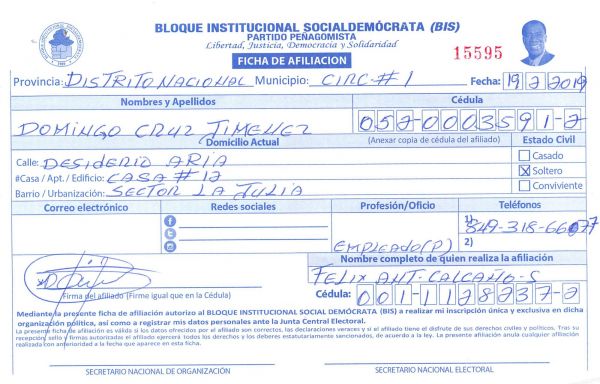 BLOQUE INSTITUCIONAL SOCIALDEMÓCRATA (BIS)
PARTIDO PEÑAGOMISTA
Libertad, Justicia, Democracia y Solidaridad
FICHA DE AFILIACION
15595
Provincia: DISTRITO NACIONAL Municipio: CIRC #1 Fecha: 19/2/2019
Nombres y Apellidos Cédula
DOMINGO CRUZ JIMENEZ 052-0003591-2
Domicilio Actual (Anexar copia de cédula del afiliado) Estado Civil
Calle: DESIDERIO ARIA
Casado
#Casa / Apt. / Edificio: CASA #12
X Soltero
Barrio / Urbanización: SECTOR LA JULIA
Conviviente
Correo electrónico Redes sociales Profesión/Oficio Teléfonos
1) 849-318-6677
2)
EMPLEADO(P)
Nombre completo de quien realiza la afiliación
FELIX ANT. CALCAÑO-S
Firma del afiliado (Firme igual que en la Cédula)
Cédula: 001-1128237-2
Mediante la presente ficha de afiliación autorizo al BLOQUE INSTITUCIONAL SOCIAL DEMÓCRATA (BIS) a realizar mi inscripción única y exclusiva en dicha
organización política, así como a registrar mis datos personales ante la Junta Central Electoral.
La presente ficha de afiliación es válida si los datos ofrecidos por el afiliado son correctos, las declaraciones veraces y si el afiliado tiene el disfrute de sus derechos civiles y políticos. Tras su
recepción sello y firmas autorizadas el afiliado ejercerá todos los derechos y los deberes estatutariamente sancionados, de acuerdo a la ley. La presente afiliación anula cualquier afiliación
realizada con anterioridad a la fecha que aparece en esta ficha.
SECRETARIO NACIONAL DE ORGANIZACIÓN SECRETARIO NACIONAL ELECTORAL